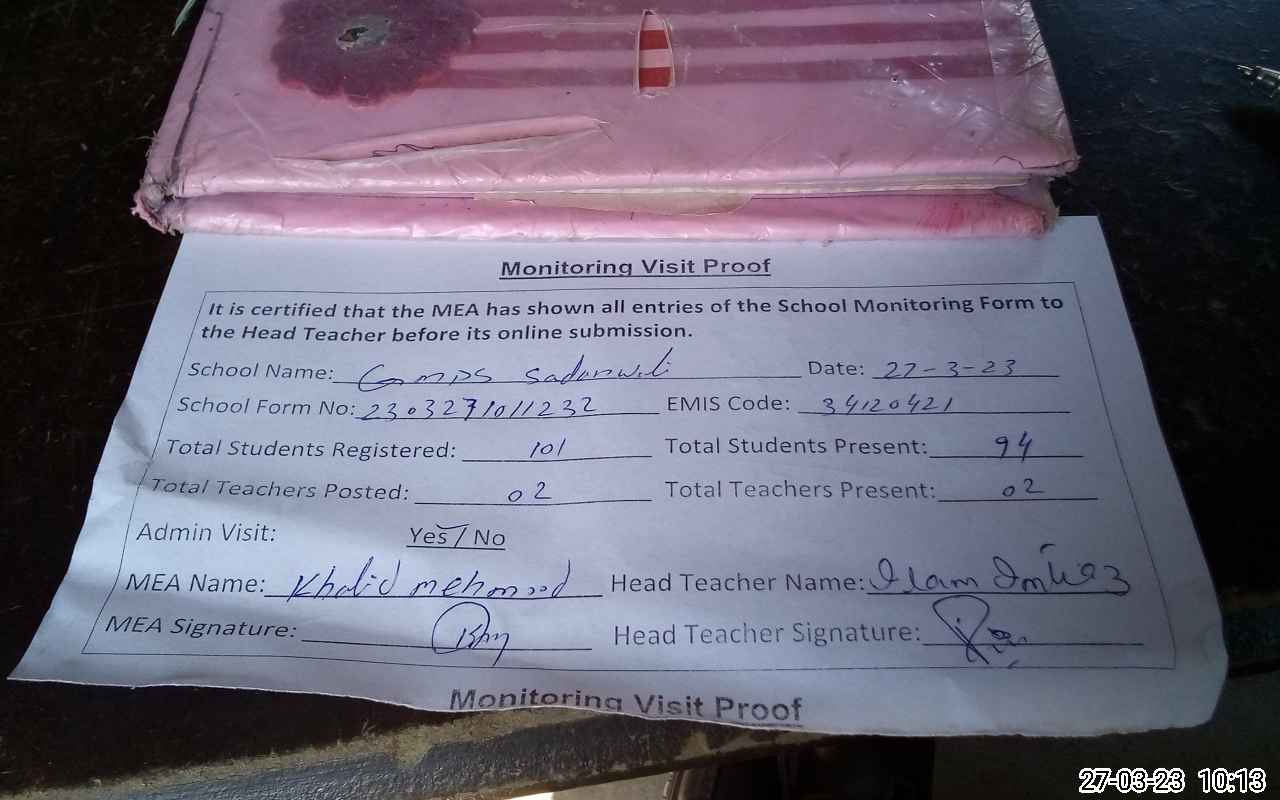 Monitoring Visit Proof
It is certified that the MEA has shown all entries of the School Monitoring Form to
the Head Teacher before its online submission.
School Name: Gmps Sadanwali Date: 27-3-23
School Form No: 2303271011232 EMIS Code: 34120421
Total Students Registered: 101 Total Students Present: 94
Total Teachers Posted: 02 Total Teachers Present: 02
Admin Visit: Yes / No
MEA Name: Khalid mehmood Head Teacher Name:
MEA Signature: Head Teacher Signature:
Monitoring Visit Proof
27-03-23 10:13